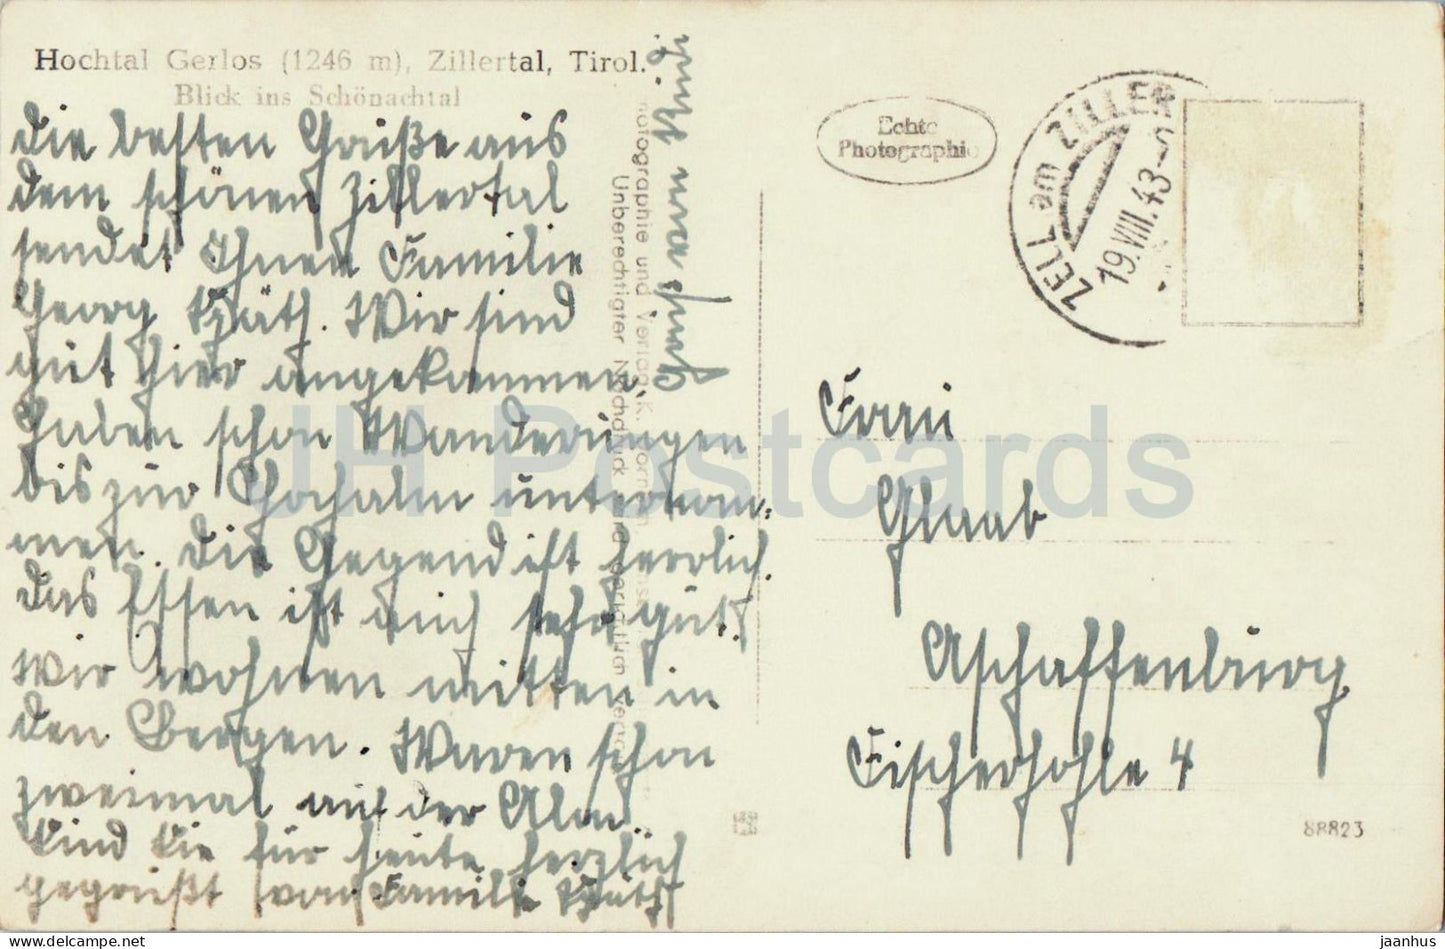 Hochtal Gerlos (1246 m), Zillertal, Tirol.
Blick ins Schönachtal
Die besten Grüße aus
dem schönen Zillertal
sendet Ihnen Familie
Georg Späth. Wir sind
gut hier angekommen,
haben schon Wanderungen
bis zur Hochalm unternom-
men. Die Gegend ist herrlich.
Das Essen ist auch sehr gut.
Wir wohnen mitten in
den Bergen. Waren schon
zweimal auf der Alm.
Sind Sie für heute herzlich
gegrüßt von Familie Späth
Gruß von
Photographie und Verlag
Unberechtigter Nachdruck wird gerichtlich
Echte
Photographie
ZELL am ZILLER
19.VIII.43
Frau
Glaab
Aschaffenburg
Fischerhohle 4
88823
JH Postcards
www.delcampe.net
jaanhus